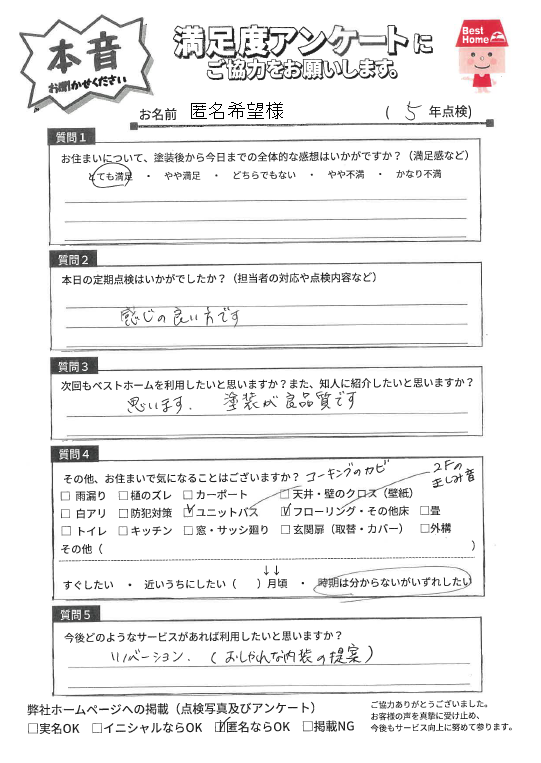 本音
お聞かせください
満足度アンケートに
ご協力をお願いします。
Best Home
お名前 匿名希望様 (5年点検)
質問1
お住まいについて、塗装後から今日までの全体的な感想はいかがですか？（満足感など）
とても満足 ・ やや満足 ・ どちらでもない ・ やや不満 ・ かなり不満
質問2
本日の定期点検はいかがでしたか？（担当者の対応や点検内容など）
感じの良い方です
質問3
次回もベストホームを利用したいと思いますか？また、知人に紹介したいと思いますか？
思います. 塗装が良品質です
質問4
その他、お住まいで気になることはございますか？ コーキングのカビ
2Fのきしみ音
□ 雨漏り □ 樋のズレ □ カーポート □ 天井・壁のクロス（壁紙）
□ 白アリ □ 防犯対策 ☑ ユニットバス ☑ フローリング・その他床 □ 畳
□ トイレ □ キッチン □ 窓・サッシ廻り □ 玄関扉（取替・カバー） □ 外構
その他（ ）
↓↓
すぐしたい ・ 近いうちにしたい（ ）月頃 ・ 時期は分からないがいずれしたい
質問5
今後どのようなサービスがあれば利用したいと思いますか？
リノベーション. (おしゃれな内装の提案)
弊社ホームページへの掲載（点検写真及びアンケート）
□実名OK □イニシャルならOK ☑匿名ならOK □掲載NG
ご協力ありがとうございました。
お客様の声を真摯に受け止め、
今後もサービス向上に努めて参ります。